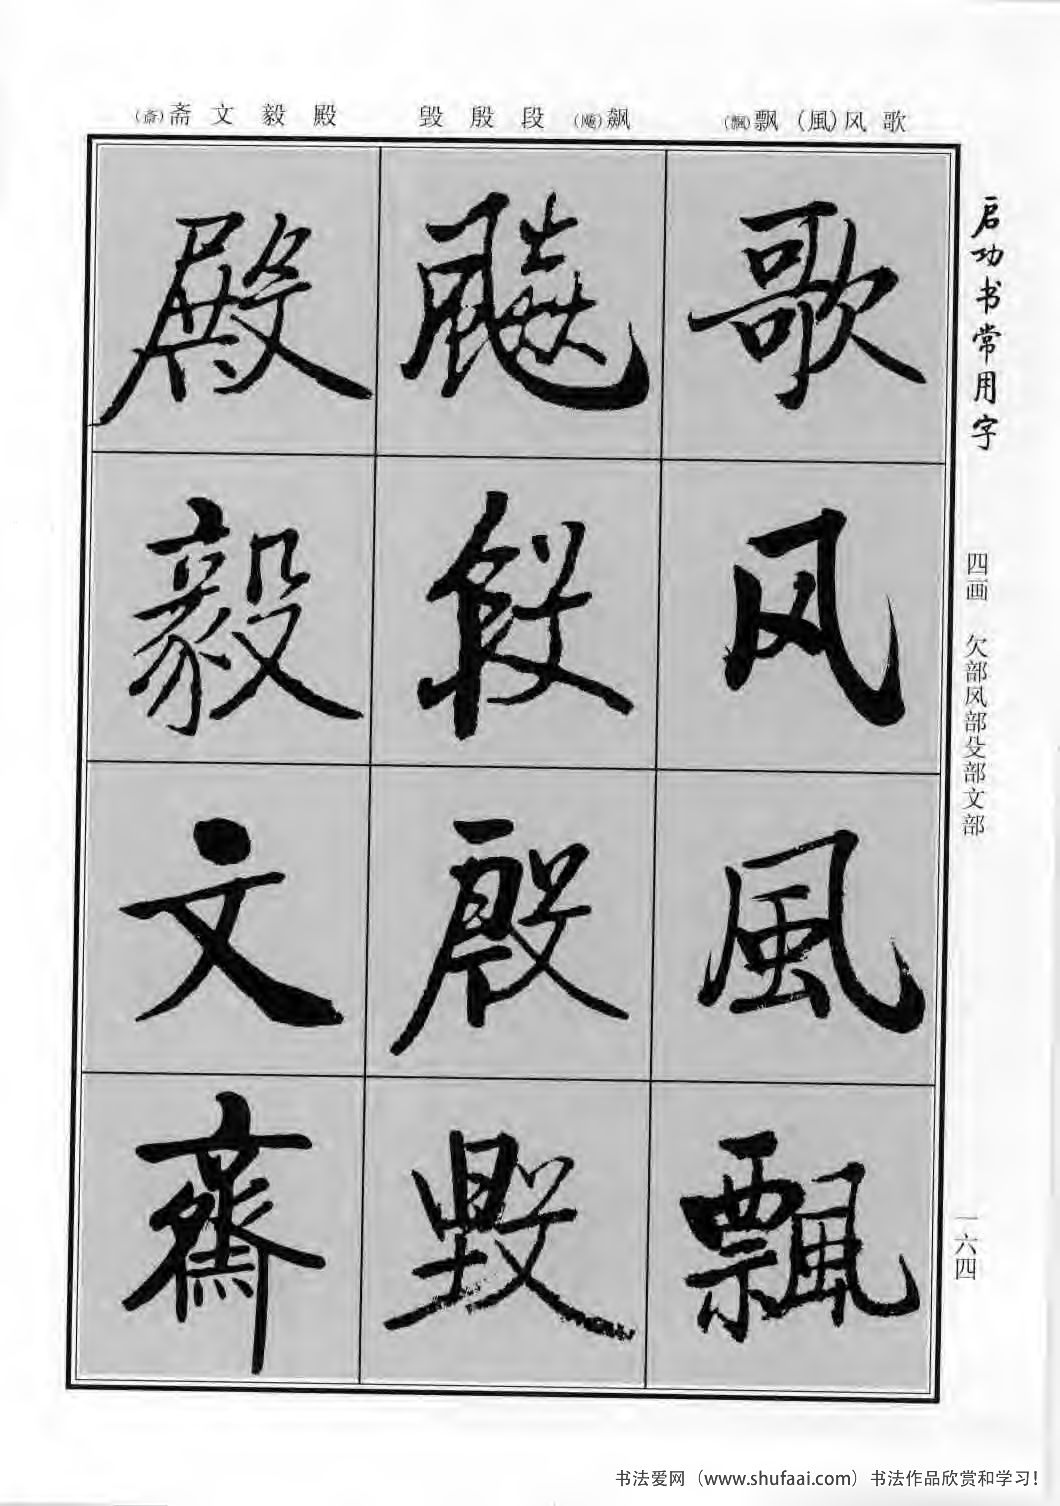 歌风（風）飘（飄）
飙（飈）段殷毁
殿毅文斋（齋）
启功书常用字
四画 欠部风部殳部文部
一六四
歌风風飄
飈段殷毁
殿毅文齋
书法爱网（www.shufaai.com）书法作品欣赏和学习！